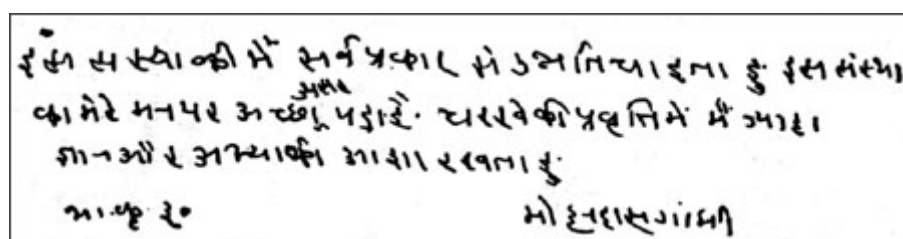 इस सस्था की मैं सर्व प्रकार से उन्नति चाहता हुं इस संस्था
का मेरे मन पर अच्छा असर पड़ा है. चरखे की प्रवृत्ति में मैं ज्यादा
ज्ञान और अभ्यास की आशा रखता हुं
मोहनदास गांधी